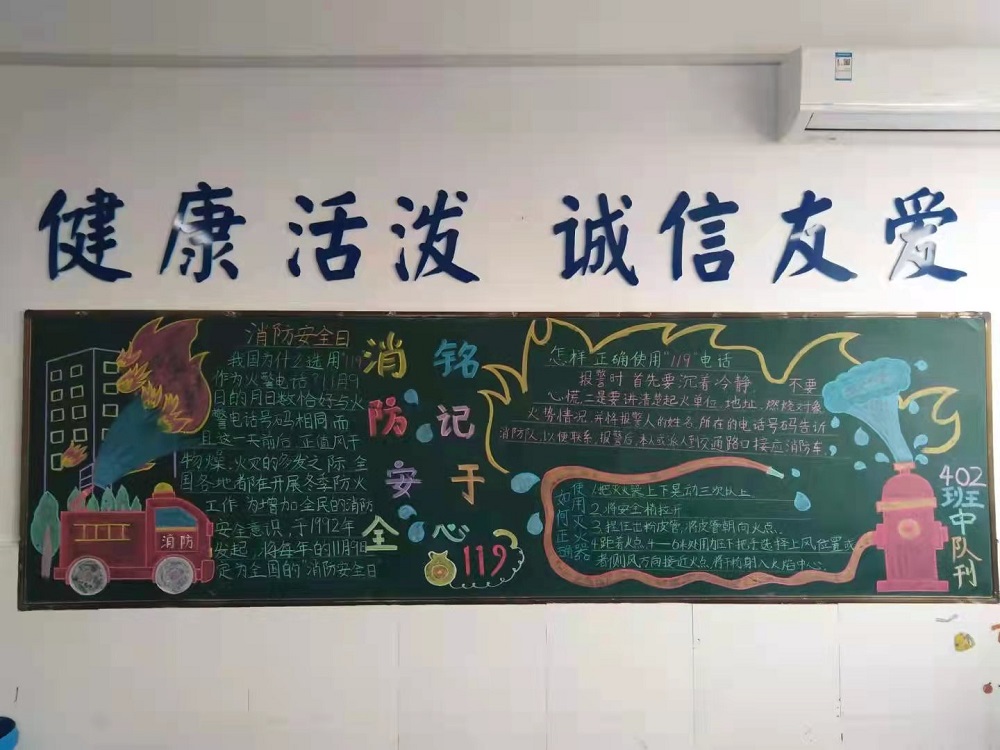 健康活泼 诚信友爱
消防安全日
我国为什么选用"119
作为火警电话?11月9
日的月日数恰好与火
警电话号码相同而
且这一天前后,正值风干
物燥、火灾的多发之际,全
国各地都在开展冬季防火
工作 为增加全民的消防
安全意识,于1992年
发起,将每年的11月9日
定为全国的"消防安全日
消防
消防安全
铭记于心
119
怎样正确使用"119"电话
报警时首先要沉着冷静, 不要
心慌 二是要讲清楚起火单位、地址、燃烧对象
火势情况,并将报警人的姓名、所在的电话号码告诉
消防队,以便联系,报警后,本人或派人到交通路口接应消防车,
如何正确
使用火器
1.把灭火器上下晃动三次以上
2.将安全销拉开
3.握住出粉皮管,将皮管朝向火点.
4.距着火点 4—6米处用力压下把手选择上风位置或
者侧风方向接近火点,将干粉射入火焰中心.
402
班中队刊